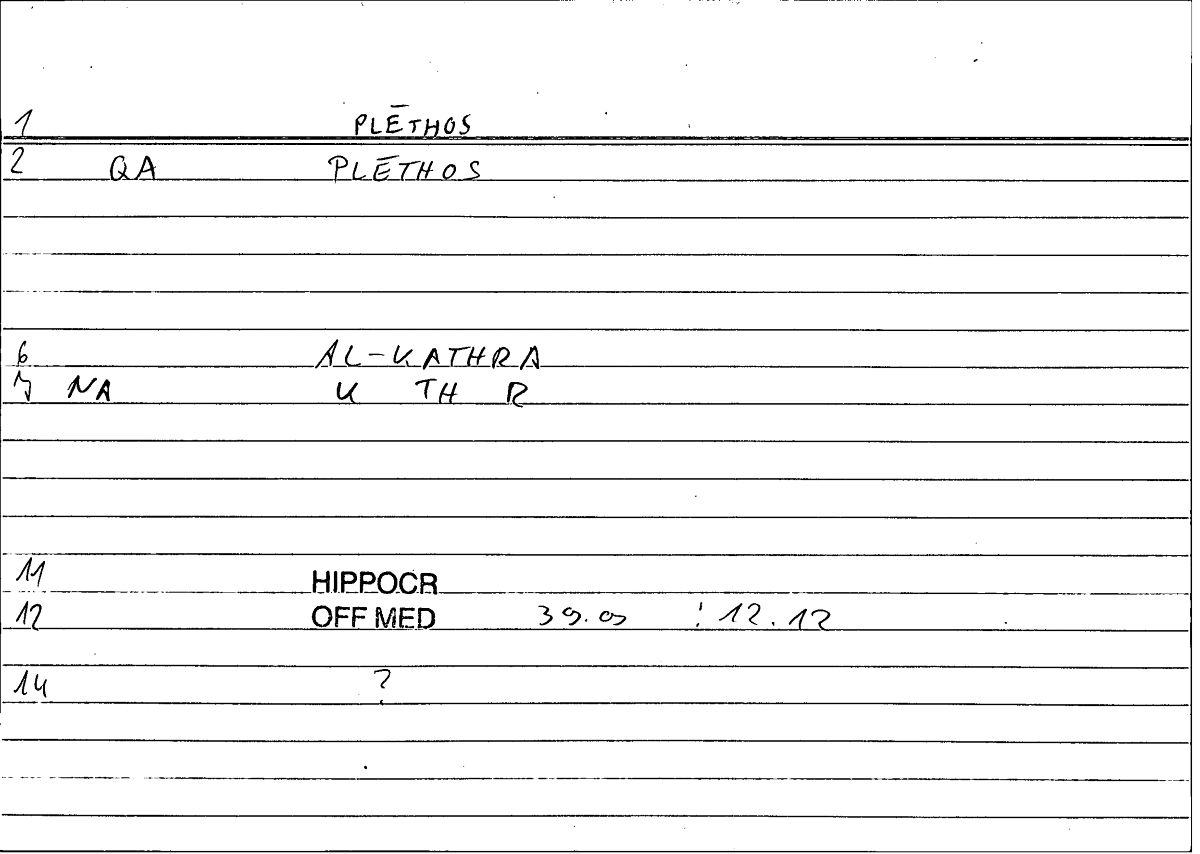 1 PLĒTHOS
2 QA PLĒTHOS
6 AL-KATHRA
7 NA K TH R
11 HIPPOCR
12 OFF MED 39.9 : 12.12
14 ?